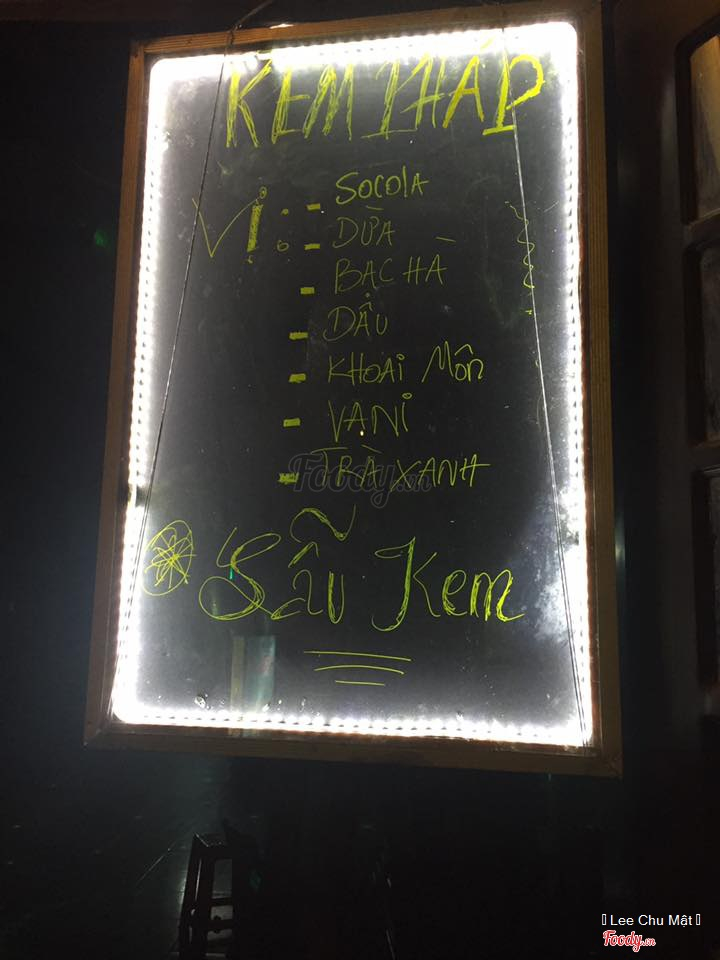 KEM THÁP
Vị: - SOCOlA
- DỪA
- BẠC HÀ
- DÂU
- KHOAI MÔN
- VANI
- TRÀ XANH
Foody.vn
Lẩu Kem
Lee Chu Mật
Foody.vn